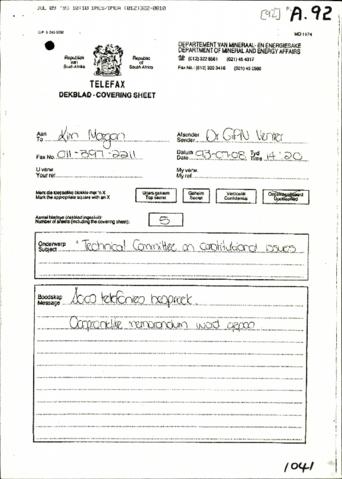 JUL 09 '93 10:10 (012)322-8810
[92] A.92
MD 1974
Republiek van Suid-Afrika
Republic of South Africa
DEPARTEMENT VAN MINERAAL- EN ENERGIESAKE
DEPARTMENT OF MINERAL AND ENERGY AFFAIRS
(012) 322 8561 (021) 45 4317
Fax No. (012) 322 3416
TELEFAX
DEKBLAD - COVERING SHEET
Aan To Kim Morgan
Afsender Sender Dr
Fax No. 011-397-2211
Datum Date 93-07-08 Tyd Time 14:20
U verw. Your ref.
My verw. My ref.
Merk die toepaslike blokkie met 'n X
Mark the appropriate square with an X
Uiters geheim Top Secret
Geheim Secret
Vertroulik Confidential
Aantal bladsye (insluitende dekblad)
Number of sheets (including the covering sheet): 5
Onderwerp Subject Technical Committee on constitutional issues
Boodskap Message Soos telefonies bespreek.
memorandum word
1041